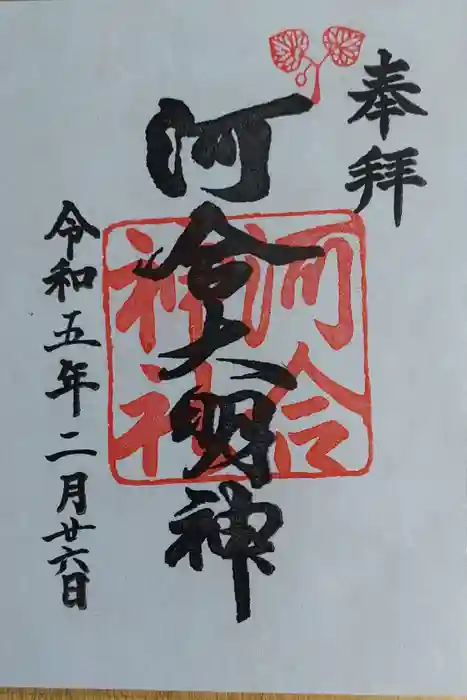 奉拝
河合大明神
河合
神社
令和五年二月廿六日